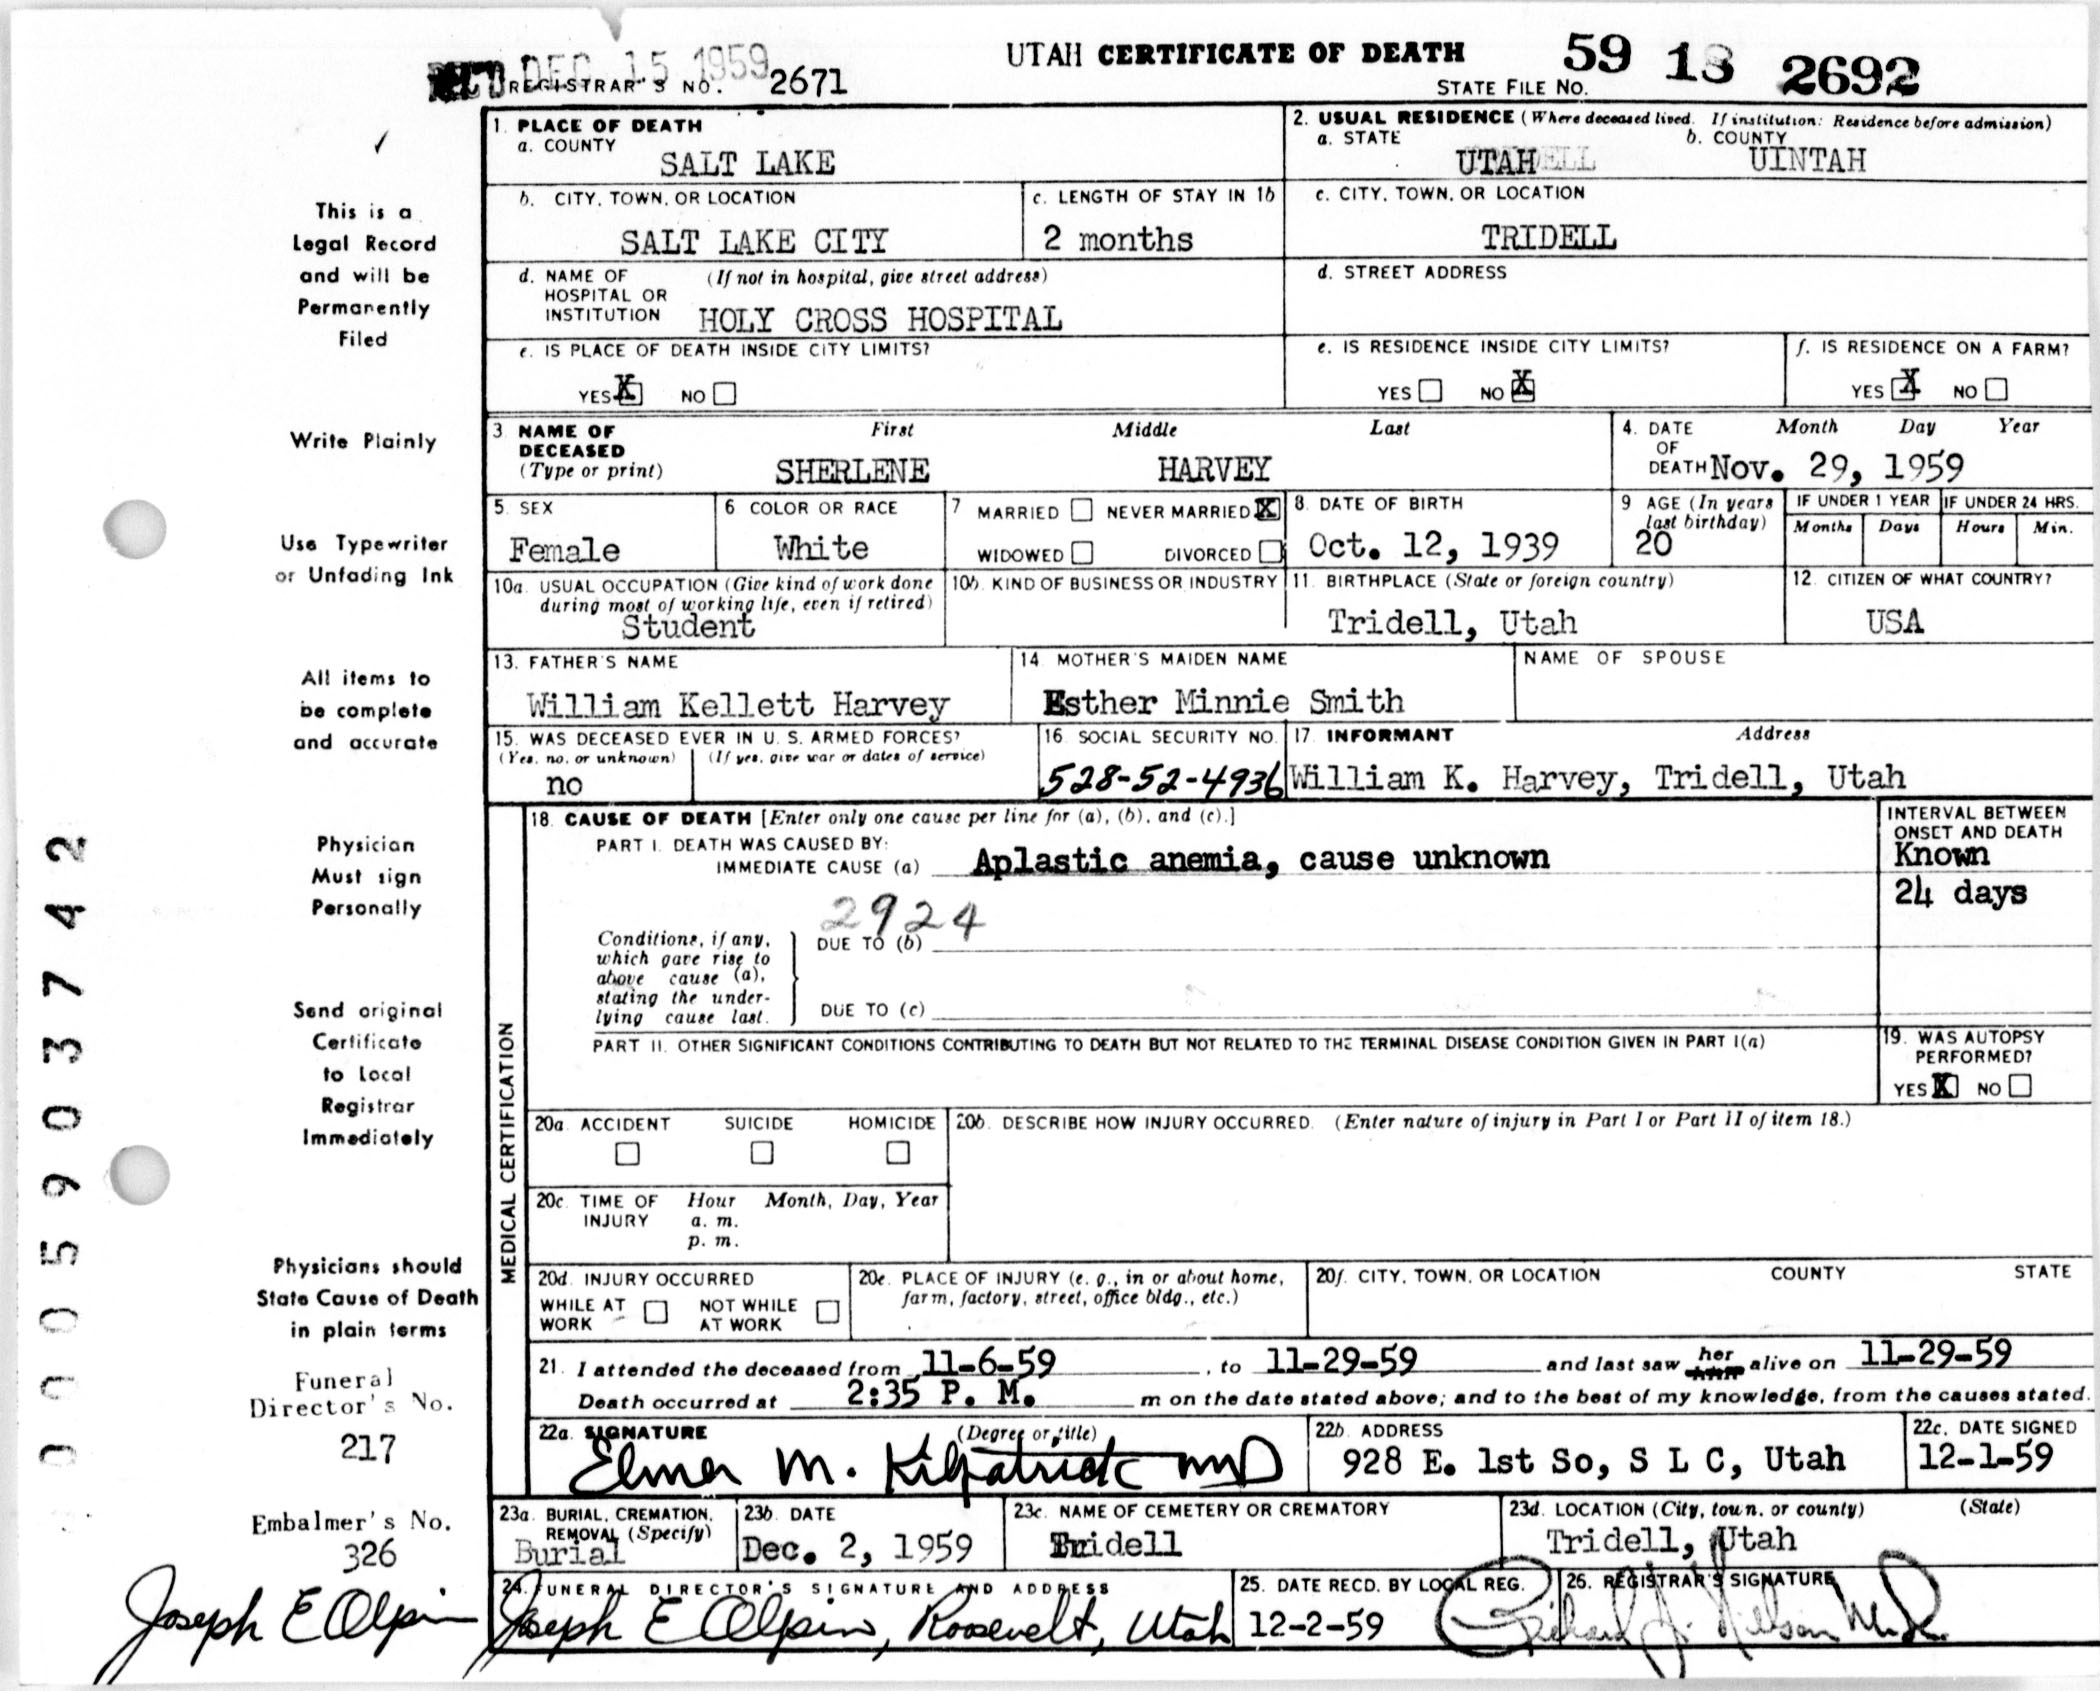 REC'D DEC 15 1959
REGISTRAR'S NO. 2671
UTAH CERTIFICATE OF DEATH
STATE FILE NO. 59 18 2692
This is a
Legal Record
and will be
Permanently
Filed
Write Plainly
Use Typewriter
or Unfading Ink
All items to
be complete
and accurate
Physician
Must sign
Personally
Send original
Certificate
to Local
Registrar
Immediately
Physicians should
State Cause of Death
in plain terms
Funeral
Director's No.
217
Embalmer's No.
326
Joseph E Olpin
000590374 2
1. PLACE OF DEATH
a. COUNTY
SALT LAKE
2. USUAL RESIDENCE (Where deceased lived. If institution: Residence before admission)
a. STATE UTAH b. COUNTY UINTAH
b. CITY, TOWN, OR LOCATION
SALT LAKE CITY
c. LENGTH OF STAY IN 1b
2 months
c. CITY, TOWN, OR LOCATION
TRIDELL
d. NAME OF HOSPITAL OR INSTITUTION (If not in hospital, give street address)
HOLY CROSS HOSPITAL
d. STREET ADDRESS
e. IS PLACE OF DEATH INSIDE CITY LIMITS?
YES X NO
e. IS RESIDENCE INSIDE CITY LIMITS?
YES NO X
f. IS RESIDENCE ON A FARM?
YES X NO
3. NAME OF DECEASED (Type or print) First Middle Last
SHERLENE HARVEY
4. DATE OF DEATH Month Day Year
Nov. 29, 1959
5. SEX
Female
6 COLOR OR RACE
White
7 MARRIED NEVER MARRIED X
WIDOWED DIVORCED
8. DATE OF BIRTH
Oct. 12, 1939
9 AGE (In years last birthday)
20
IF UNDER 1 YEAR
Months Days
IF UNDER 24 HRS.
Hours Min.
10a. USUAL OCCUPATION (Give kind of work done
during most of working life, even if retired)
Student
10b. KIND OF BUSINESS OR INDUSTRY
11. BIRTHPLACE (State or foreign country)
Tridell, Utah
12. CITIZEN OF WHAT COUNTRY?
USA
13. FATHER'S NAME
William Kellett Harvey
14. MOTHER'S MAIDEN NAME
Esther Minnie Smith
NAME OF SPOUSE
15. WAS DECEASED EVER IN U. S. ARMED FORCES?
(Yes, no, or unknown) (If yes, give war or dates of service)
no
16. SOCIAL SECURITY NO.
528-52-4936
17. INFORMANT Address
William K. Harvey, Tridell, Utah
MEDICAL CERTIFICATION
18. CAUSE OF DEATH [Enter only one cause per line for (a), (b), and (c).]
PART I. DEATH WAS CAUSED BY:
IMMEDIATE CAUSE (a) Aplastic anemia, cause unknown
INTERVAL BETWEEN
ONSET AND DEATH
Known
24 days
2924
Conditions, if any,
which gave rise to
above cause (a),
stating the under-
lying cause last.
DUE TO (b)
DUE TO (c)
PART II. OTHER SIGNIFICANT CONDITIONS CONTRIBUTING TO DEATH BUT NOT RELATED TO THE TERMINAL DISEASE CONDITION GIVEN IN PART I(a)
19. WAS AUTOPSY
PERFORMED?
YES X NO
20a. ACCIDENT SUICIDE HOMICIDE
20b. DESCRIBE HOW INJURY OCCURRED. (Enter nature of injury in Part I or Part II of item 18.)
20c. TIME OF INJURY Hour Month, Day, Year
a. m.
p. m.
20d. INJURY OCCURRED
WHILE AT WORK NOT WHILE AT WORK
20e. PLACE OF INJURY (e. g., in or about home,
farm, factory, street, office bldg., etc.)
20f. CITY, TOWN, OR LOCATION COUNTY STATE
21. I attended the deceased from 11-6-59, to 11-29-59 and last saw her alive on 11-29-59
Death occurred at 2:35 P. M. m on the date stated above; and to the best of my knowledge, from the causes stated.
22a. SIGNATURE (Degree or title)
Elmer M. Kilpatrick MD
22b. ADDRESS
928 E. 1st So, S L C, Utah
22c. DATE SIGNED
12-1-59
23a. BURIAL, CREMATION,
REMOVAL (Specify)
Burial
23b. DATE
Dec. 2, 1959
23c. NAME OF CEMETERY OR CREMATORY
Tridell
23d. LOCATION (City, town, or county) (State)
Tridell, Utah
24. FUNERAL DIRECTOR'S SIGNATURE AND ADDRESS
Joseph E Olpin, Roosevelt, Utah
25. DATE RECD. BY LOCAL REG.
12-2-59
26. REGISTRAR'S SIGNATURE
Richard J. Nilson M.D.